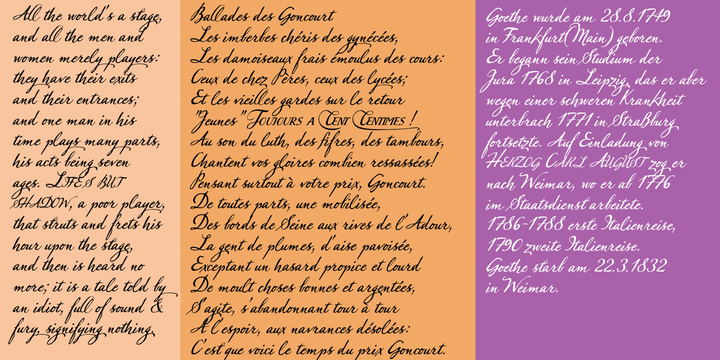 All the world's a stage,
and all the men and
women merely players:
they have their exits
and their entrances;
and one man in his
time plays many parts,
his acts being seven
ages. LIFE'S BUT
SHADOW, a poor player,
that struts and frets his
hour upon the stage,
and then is heard no
more; it is a tale told by
an idiot, full of sound &
fury, signifying nothing
Ballades des Goncourt
Les imberbes chéris des gynécées,
Les damoiseaux frais émoulus des cours:
Ceux de chez Pères, ceux des lycées;
Et les vieilles gardes sur le retour
"Jeunes" TOUJOURS A CENT CENTIMES !
Au son du luth, des fifres, des tambours,
Chantent vos gloires combien ressassées!
Pensant surtout à votre prix, Goncourt.
De toutes parts, une mobilisée,
Des bords de Seine aux rives de l'Adour,
La gent de plumes, d'aise pavoisée,
Exceptant un hasard propice et lourd
De moult choses bonnes et argentées,
S'agite, s'abandonnant tour à tour
A l'espoir, aux navrances désolées:
C'est que voici le temps du prix Goncourt.
Goethe wurde am 28.8.1749
in Frankfurt(Main) geboren.
Er begann sein Studium der
Jura 1768 in Leipzig, das er aber
wegen einer schweren Krankheit
unterbrach 1771 in Straßburg
fortsetzte. Auf Einladung von
HERZOG CARL AUGUST zog er
nach Weimar, wo er ab 1776
im Staatsdienst arbeitete.
1786-1788 erste Italienreise,
1790 zweite Italienreise.
Goethe starb am 22.3.1832
in Weimar.